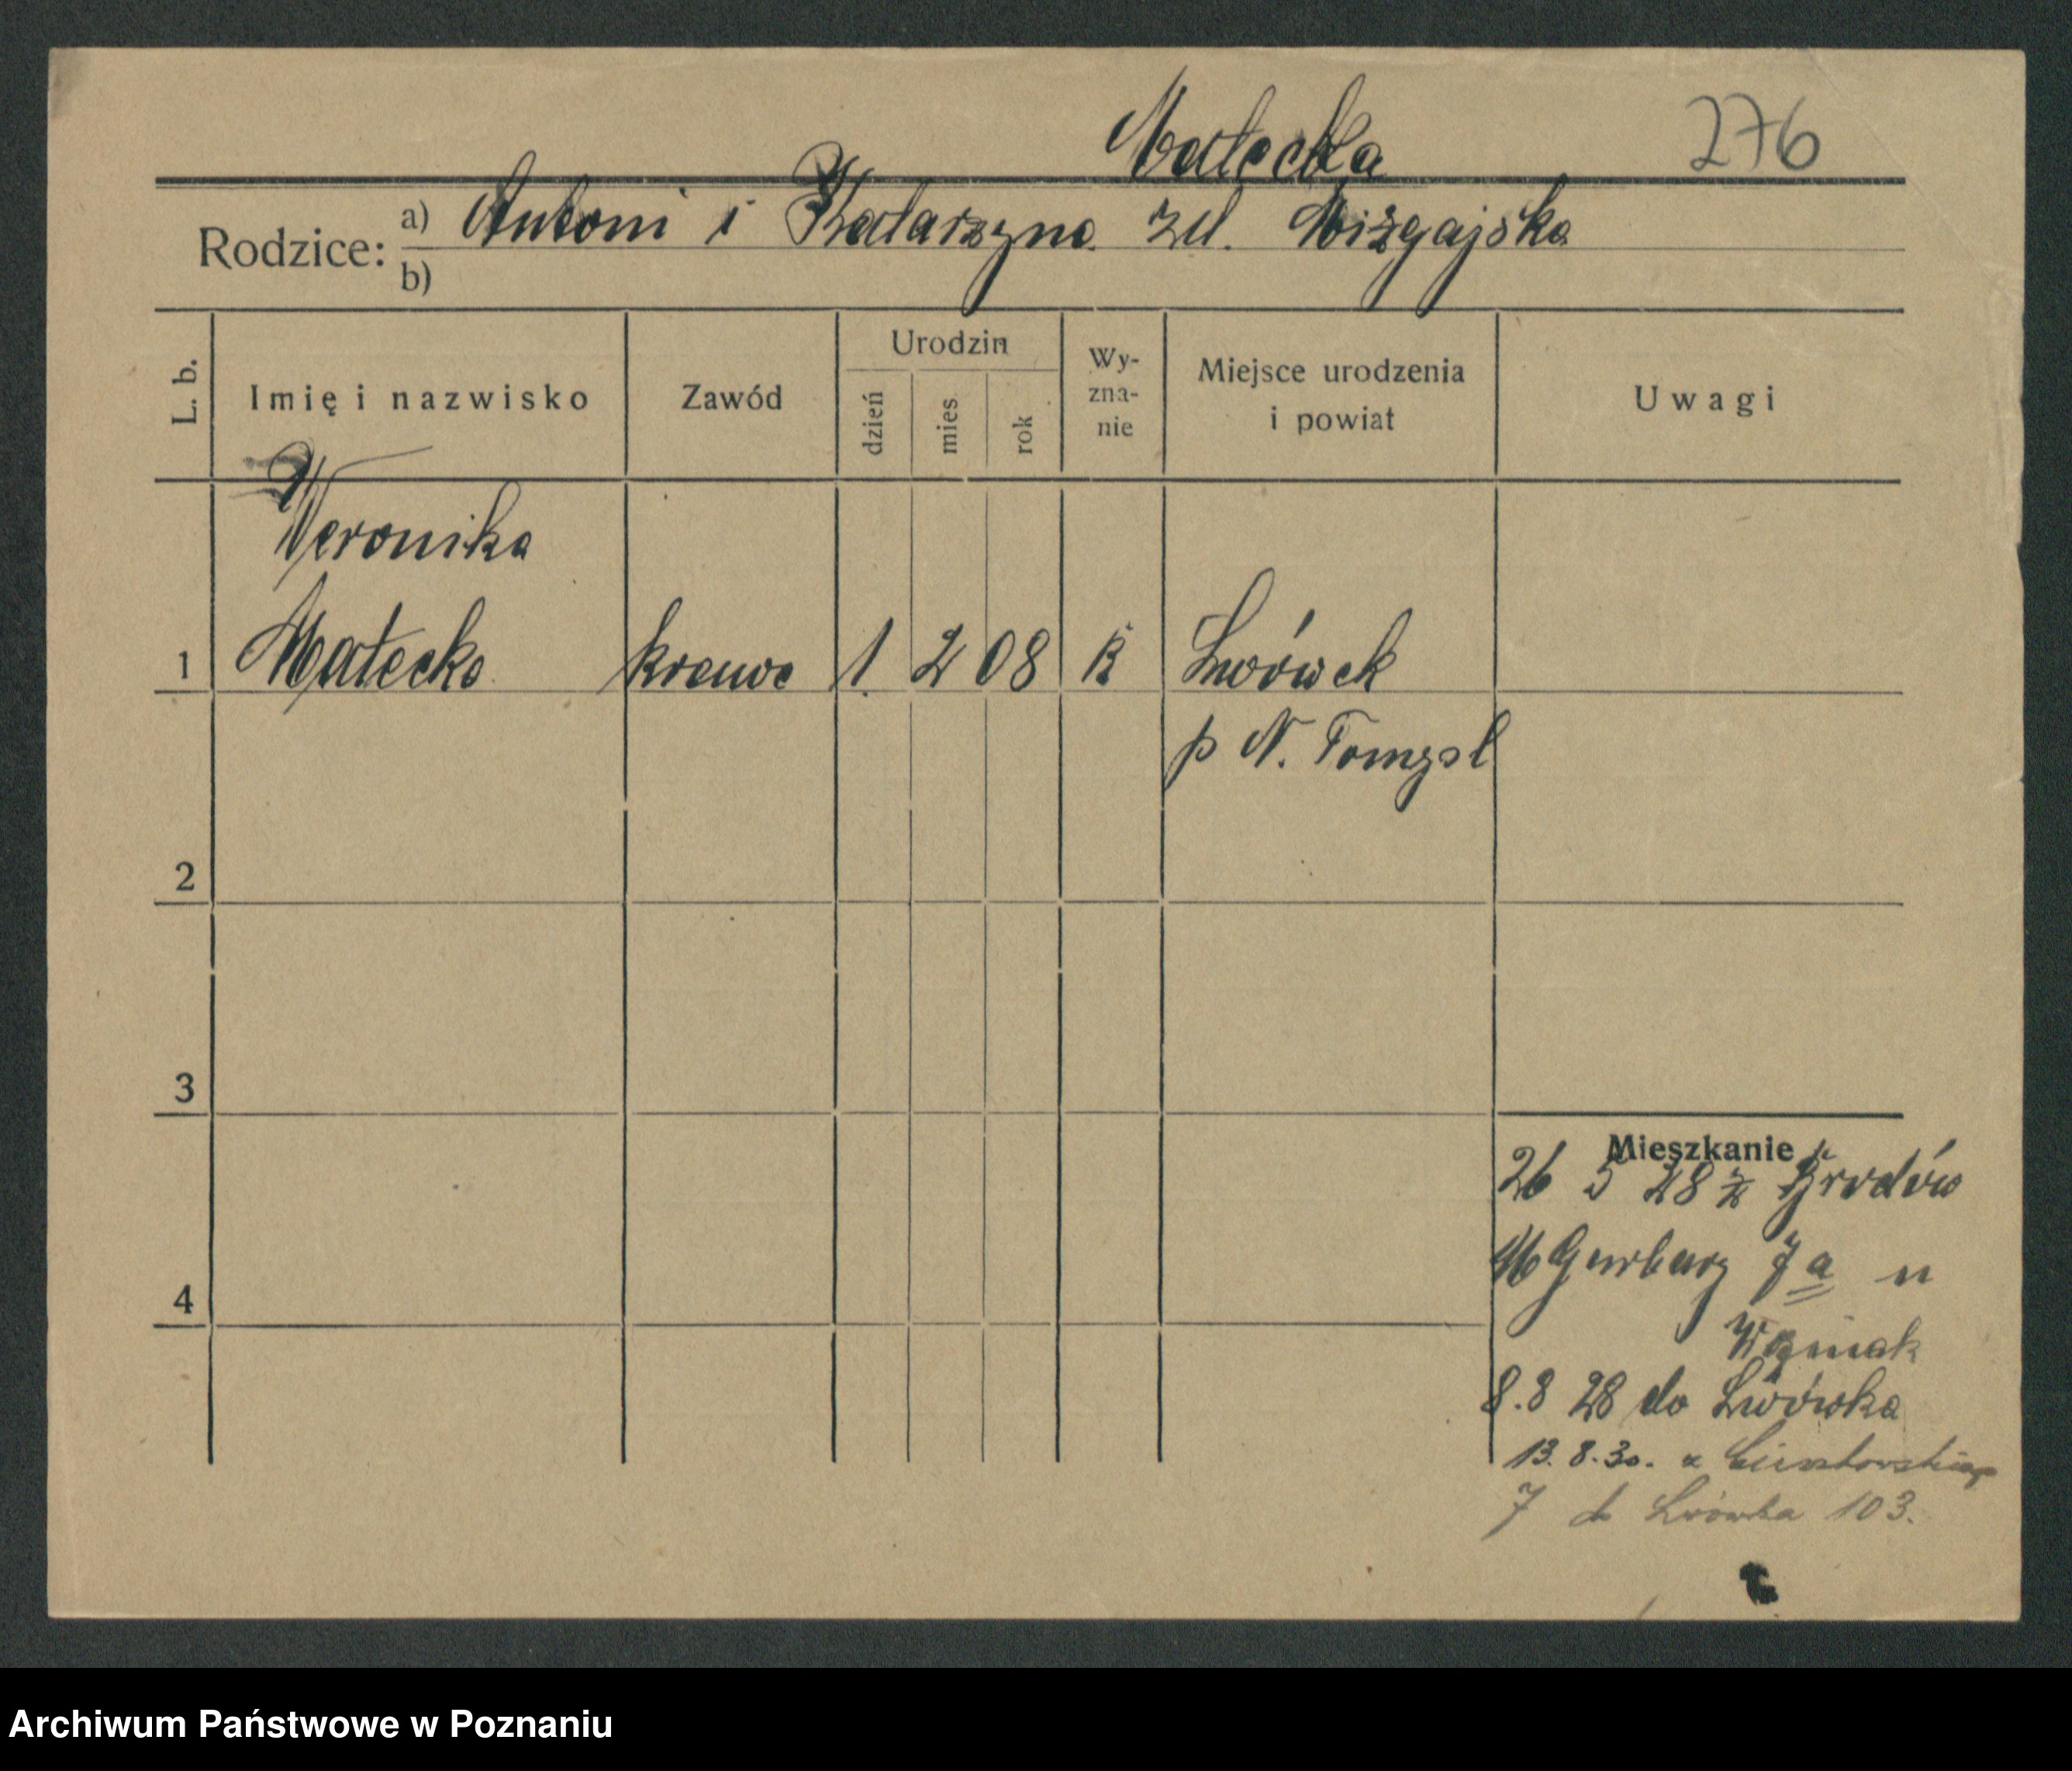 Małecka 276
Rodzice: a) Antoni i Katarzyna zd. Mizgajska
b)
L. b. Imię i nazwisko Zawód Urodzin dzień mies rok Wy-zna-nie Miejsce urodzenia i powiat Uwagi
Weronika
1 Małecka krawc 1 2 08 k Lwówek
p N. Tomysl
2
3
Mieszkanie
26 5 28 z
7 a u
Woźniak
4
8.8 28 do Lwówka
13. 8. 30. z
7 do Lwówka 103.
Archiwum Państwowe w Poznaniu